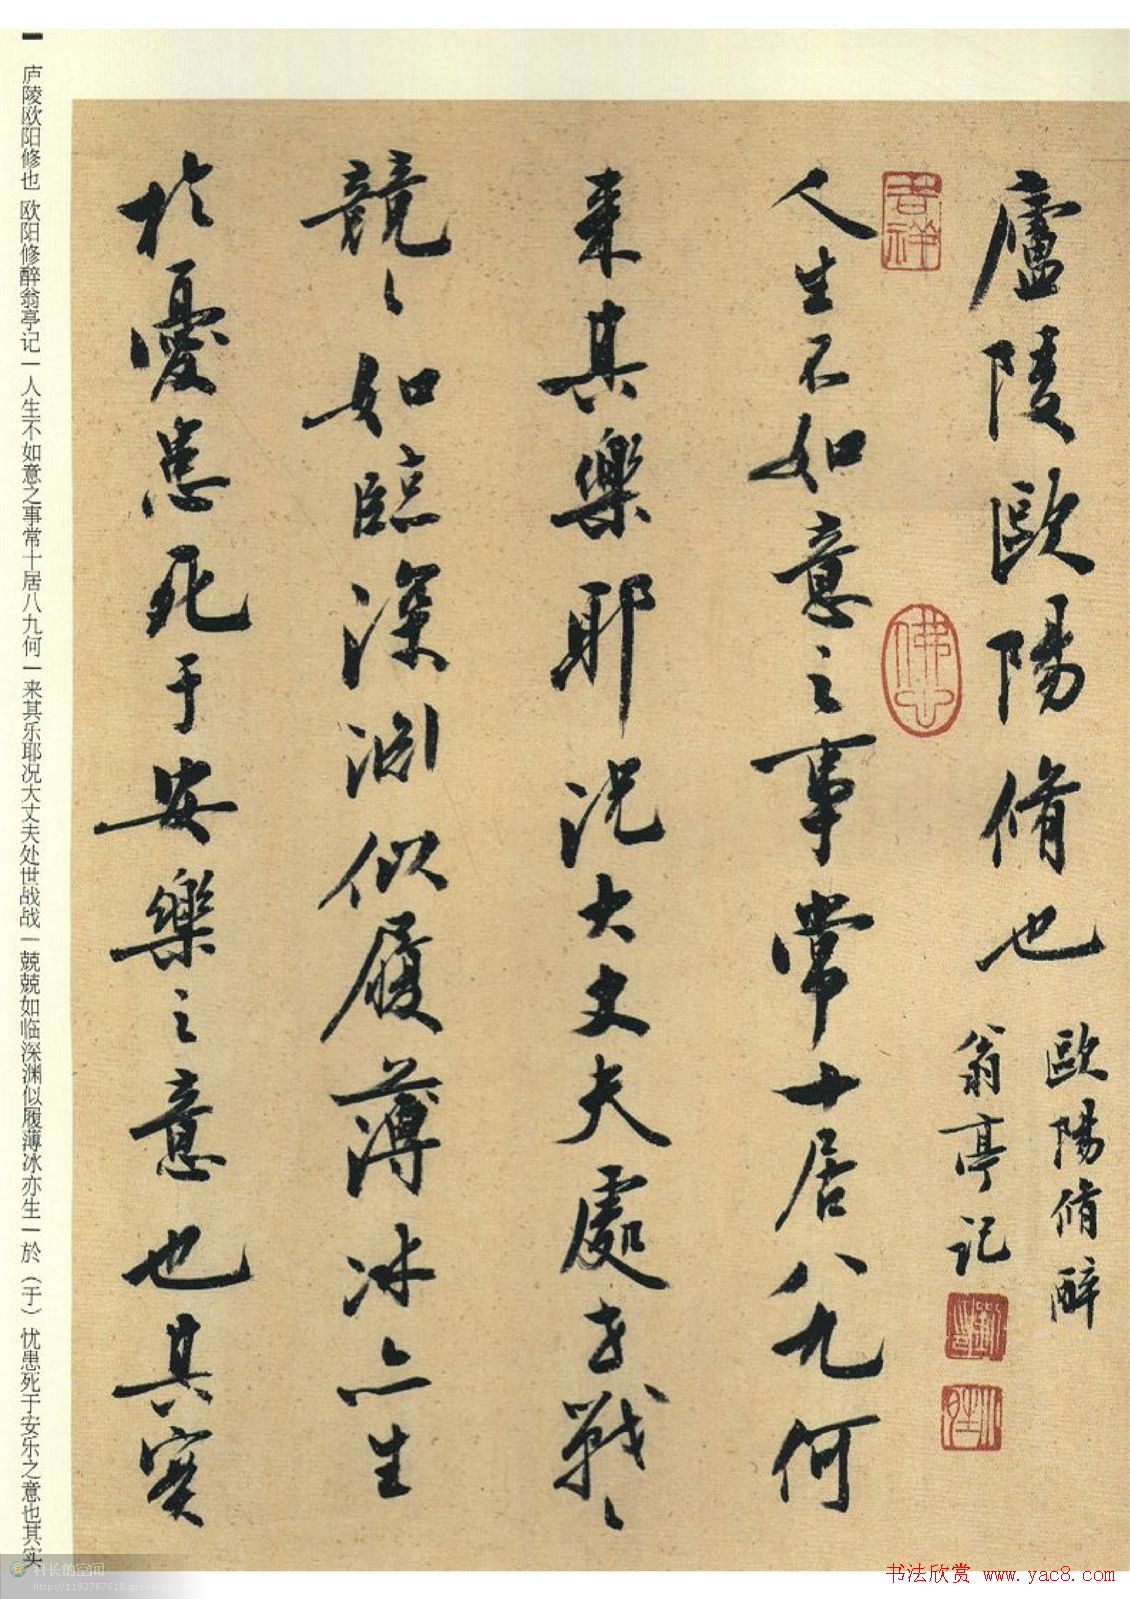 廬陵歐陽脩也
歐陽脩醉
翁亭記
人生不如意之事常十居八九何
来其樂耶况大丈夫處世戰〻
競〻如臨深渊似履薄冰亦生
於憂患死于安樂之意也其实
佛心
一 庐陵欧阳修也 欧阳修醉翁亭记｜人生不如意之事常十居八九何｜来其乐耶况大丈夫处世战战｜兢兢如临深渊似履薄冰亦生｜於（于）忧患死于安乐之意也其实
科长的空间
http://1193767618.qzone.qq.com
书法欣赏 www.yac8.com